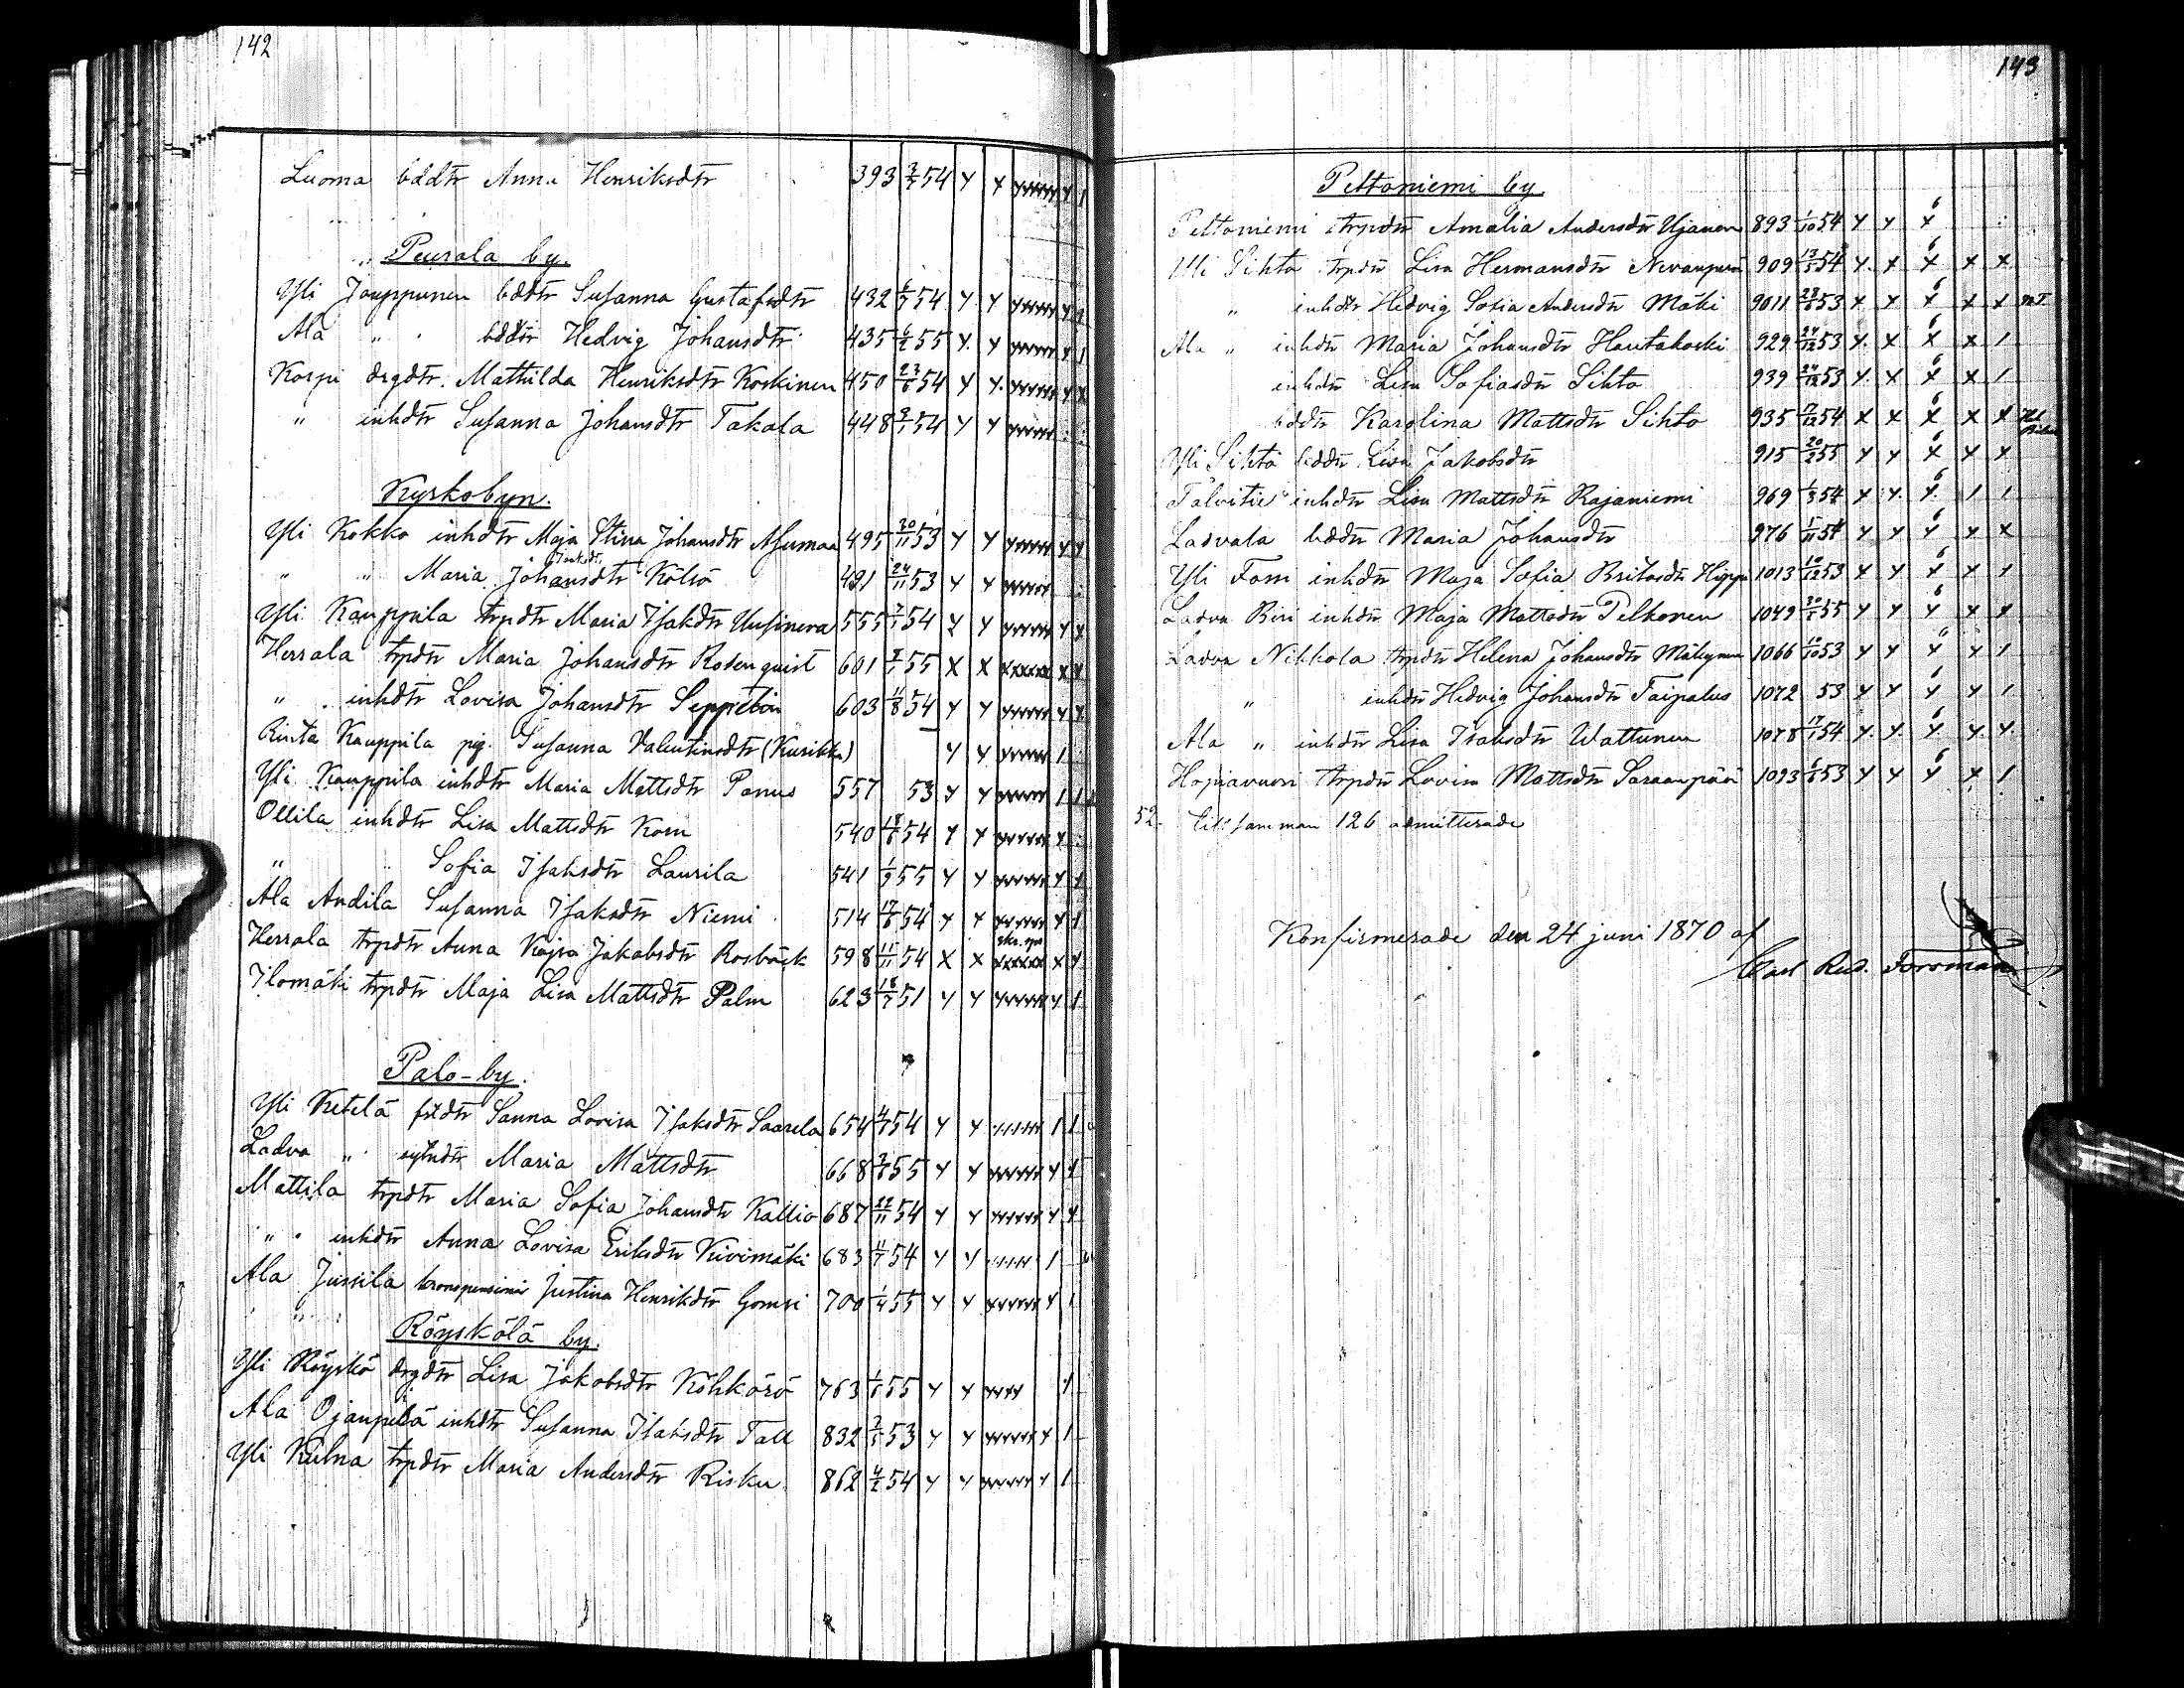 142
Luoma bddtr Anna Henriksdtr 393 2/7 54 y x yyyyyy y 1
Peurala by.
Yli Jouppunen bddtr Susanna Gustafsdtr 432 54 y y yyyyyy
Ala " bddtr Hedvig Johansdtr 435 6/2 55 y y yyyyyy y 1
Korpi drgdtr. Mathilda Henriksdtr Koskinen 450 23/6 54 y y yyyyyy y x
" inhdtr Susanna Johansdtr Takala 448 54 y y yyyyyy
Kyrkobyn.
Yli Kokko inhdtr Maja Stina Johansdtr Asumaa 495 20/11 53 y y yyyyyy y y
" " Maria Johansdtr Kölsö 491 24/11 53 y y yyyyyy
Yli Kauppila trpdtr Maria Isakdtr Uusineva 555 54 y y yyyyyy y y
Herrala trpdtr Maria Johansdtr Rosenquist 601 55 x x xxxxxx x x
" inhdtr Lovisa Johansdtr Seppelin 603 11/8 54 y y yyyyyy y y
Rinta Kauppila pig. Susanna Valentinsdtr (Kurikka) y y yyyyyy 1
Yli Kauppila inhdtr Maria Mattsdtr Panus 557 53 y y yyyyyy 1 1
Ollila inhdtr Lisa Mattsdtr Korn 540 18/6 54 y y yyyyyy y
" Sofia Isaksdtr Laurila 541 55 y y yyyyyy y y
Ala Andila Susanna Isaksdtr Niemi 514 54 y y yyyyyy y 1
Herrala trpdtr Anna Kajsa Jakobsdtr Rosbäck 598 11/11 54 x x xxxxxx x y
Ilomäki trpdtr Maja Lisa Mattsdtr Palm 623 18/7 51 y y yyyyyy y 1
Palo-by.
Yli Ketelä Sanna Lovisa Isaksdtr Saarela 654 54 y y 1 1
Ladva " Maria Mattsdtr 668 55 y y yyyyyy y y
Mattila trpdtr Maria Sofia Johansdtr Kallio 687 22/11 54 y y yyyyyy y y
" inhdtr Anna Lovisa Eriksdtr Kivimäki 683 11/7 54 y y 1
Ala Jussila Justina Henrikdtr Gomsi 700 1/4 55 y y yyyyyy y 1
Röyskölä by.
Yli Röyskö drgdtr Lisa Jakobsdtr Köhkörö 763 55 y y yyyy
Ala Ojanperä inhdtr Susanna Isaksdtr Tall 832 53 y y yyyyyy y 1
Yli Külna trpdtr Maria Andersdtr Risku 862 4/2 54 y y yyyyyy y 1
143
Peltoniemi by.
Peltoniemi trpdtr Amalia Andersdtr Ujanen 893 1/10 54 y y x 6
Yli Sihto trpdtr Lisa Hermansdtr Nevanperä 909 54 y x x 6 x x
" inhdtr Hedvig Sofia Andersdtr Mäki 9011 53 x x x 6 x x
Ala " inhdtr Maria Johansdtr Hautakoski 929 24/12 53 y x x 6 x 1
inhdtr Lisa Sofiasdtr Sihto 939 24/12 53 y x x 6 x 1
bddtr Karolina Mattsdtr Sihto 935 17/12 54 x x x 6 x x
Yli Sihto bddtr Lisa Jakobsdtr 915 20/2 55 y y x 6 x y
Talvitie inhdtr Lisa Mattsdtr Rajaniemi 969 1/3 54 x y y 6 1 1
Ladvala bddtr Maria Johansdtr 976 1/11 54 y y y 6 y x
Yli Fom inhdtr Maja Sofia Britasdtr Hippi 1013 10/12 53 x y y 6 y y
Ladva Piri inhdtr Maja Mattsdtr Pelkonen 1049 55 y y y 6 x x
Ladva Nikkola trpdtr Helena Johansdtr Mäkynen 1066 10/10 53 y y y 6 y 1
" inhdtr Hedvig Johansdtr Taipalus 1072 53 y y y 6 y 1
Ala " inhdtr Lisa Isaksdtr Wattunen 1078 54 y y y 6 y y
Hopiavuori trpdtr Lovisa Mattsdtr Saraanpää 1093 53 y y y 6 x 1
52. Tillsamman 126 admitterade
Konfirmerade den 24 juni 1870 af
Carl Rud. Forsman